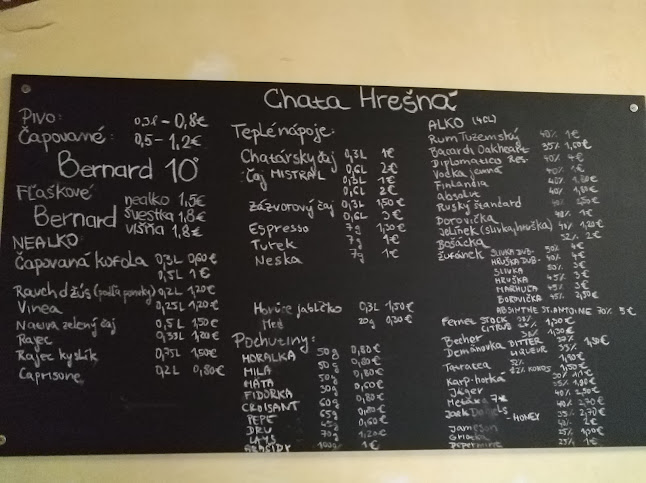 Chata Hrešná
PIVO:
ČAPOVANÉ: 0,3L - 0,8€
0,5 - 1,2€
Bernard 10°
FĽAŠKOVÉ
Bernard nealko 1,5€
švestka 1,8€
višňa 1,8€
NEALKO:
Čapovaná kofola 0,3L 0,60€
0,5L 1€
Rauch džús (podľa ponuky) 0,2L 1,20€
Vinea 0,25L 1,20€
Natura zelený čaj 0,5L 1,50€
Rajec 0,33L 1,20€
Rajec kyslík 0,75L 1,50€
Caprisone 0,2L 0,80€
Teplé nápoje:
Chatársky čaj 0,3L 1€
0,6L 2€
Čaj MISTRAL 0,3L 1€
0,6L 2€
Zázvorový čaj 0,3L 1,50€
0,6L 3€
Espresso 7g 1,30€
Turek 7g 1€
Neska 7g 1€
Horúce jabĺčko 0,3L 1,50€
Med 20g 0,30€
Pochutiny:
HORALKA 50g 0,80€
MILA 50g 0,80€
MÄTA 30g 0,60€
FIDORKA 60g 0,80€
CROISANT 65g 0,80€
PEPE 45g 0,60€
DRU 70g 1,20€
LAYS
ARAŠIDY 100g 1€
ALKO (4CL)
Rum Tuzemský 40% 1€
Bacardi Oakheart 35%
Diplomatico Res. 40% 4€
Vodka jemná 40% 1€
Finlandia 40%
absolut 40%
Ruský štandard 40%
Borovička 40% 1€
Jelínek (slivka, hruška) 1,20€
Bošácka 52% 2€
Žufánek SLIVKA DUB- 50% 4€
HRUŠKA DUB- 45% 4€
SLIVKA 50% 3€
HRUŠKA 45% 3€
MARHUĽA 45% 3€
BOROVIČKA 45% 2,50€
ABSINTHE ST. ANTOINE 70% 5€
Fernet STOCK
CITRUS 1,30€
Becher 1,30€
Demänovka BITTER
LIQUEUR 33%
Tatratea 52%
22% KOKOS
Karp-horká
Jäger 2,50€
Metaxa 7* 40% 2,70€
Jack Daniels
-HONEY 35% 2,70€
Jameson
Griotka 25%
Pepermint 25% 1€